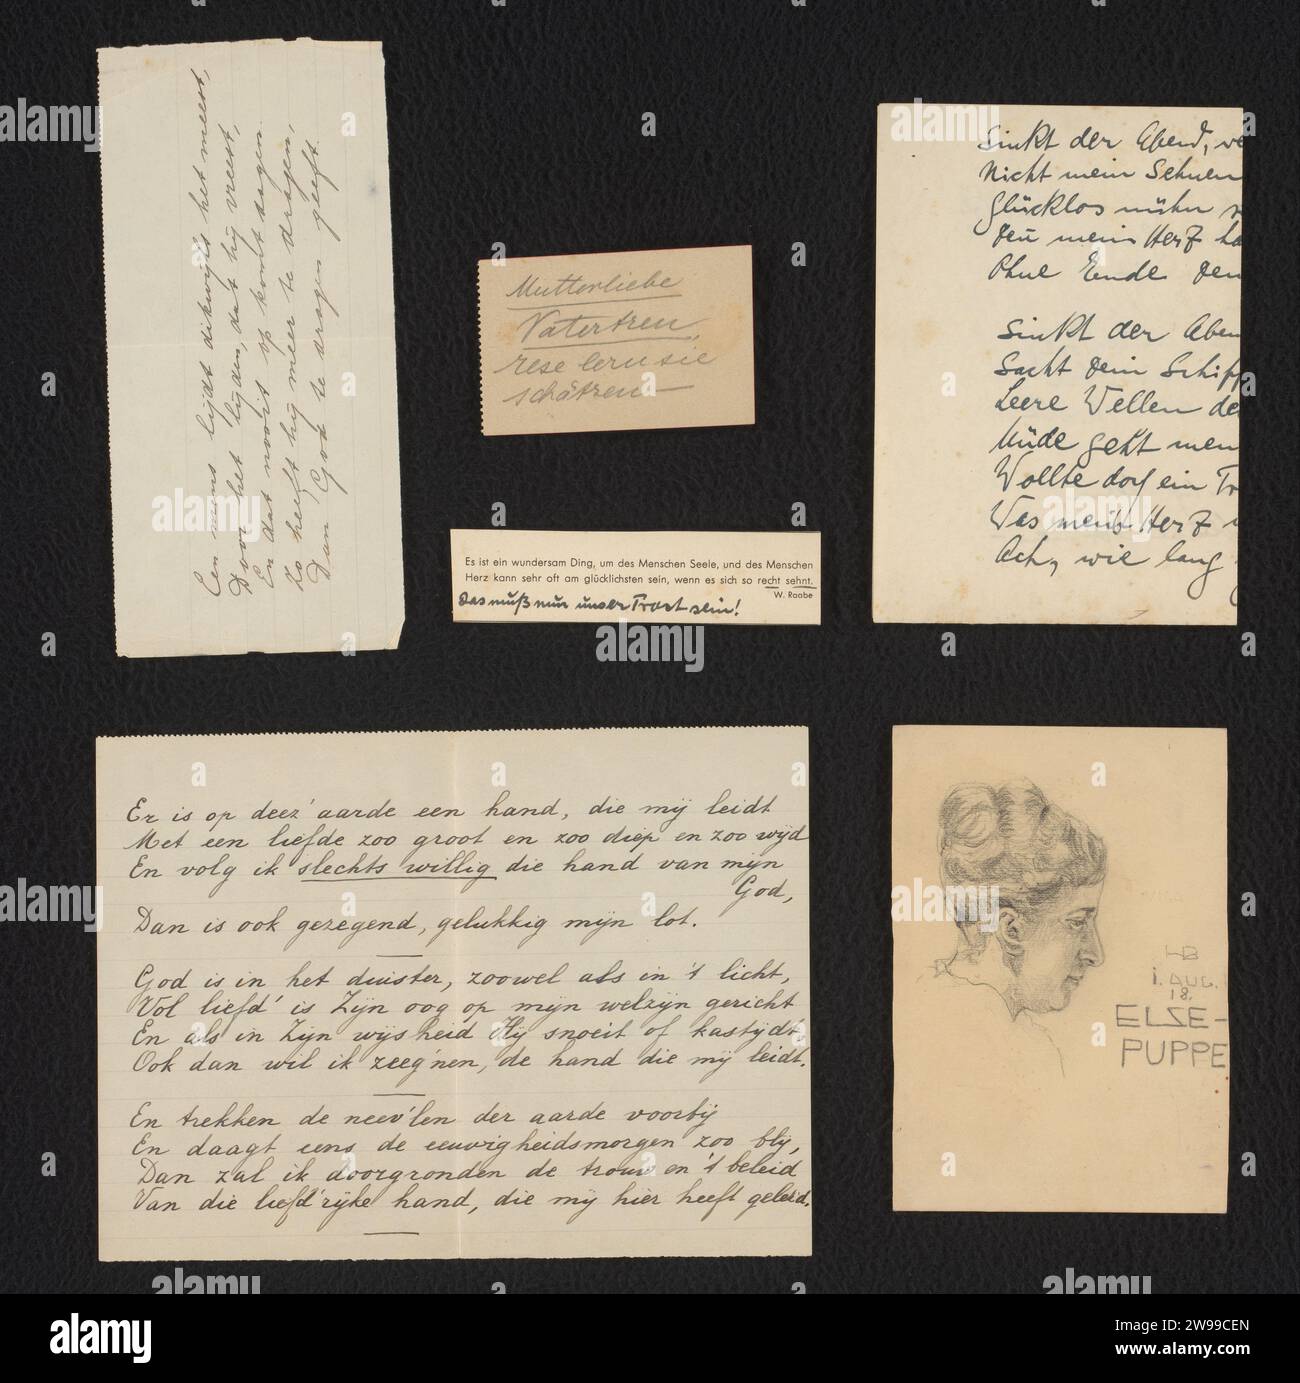 Een mens lijdt dikwijls het meest,
Door het lijden, dat hij vreest,
En dat nooit op komt dagen.
Zo heeft hij meer te dragen,
Dan God te dragen geeft.
Mutterliebe
Vatertreu,
rese lern sie
schätzen
Sinkt der Abend, ve
Nicht mein Sehnen
Glücklos
Den mein Herz ha
Ohne Ende den
Sinkt der Aben
Sacht dein Schiff
Leere Wellen de
Müde geht mein
Wollte doch ein Tr
Was mein Herz
Ach, wie lang
Es ist ein wundersam Ding, um des Menschen Seele, und des Menschen
Herz kann sehr oft am glücklichsten sein, wenn es sich so recht sehnt.
W. Raabe
das muß nun unser Trost sein!
Er is op deez' aarde een hand, die mij leidt
Met een liefde zoo groot en zoo diep en zoo wijd
En volg ik slechts willig die hand van mijn
God,
Dan is ook gezegend, gelukkig mijn lot.
God is in het duister, zoowel als in 't licht,
Vol liefd' is Zijn oog op mijn welzijn gericht
En als in Zijn wijsheid Hij snoeit of kastijdt,
Ook dan wil ik zeeg'nen, de hand die mij leidt.
En trekken de neev'len der aarde voorbij
En daagt eens de eeuwigheidsmorgen zoo blij,
Dan zal ik doorgronden de trouw en 't beleid
Van die liefd'rijke hand, die mij hier heeft geleid.
HB
1. AUG.
18.
ELSE-
PUPPE
alamy
Image ID: 2W99CEN
www.alamy.com